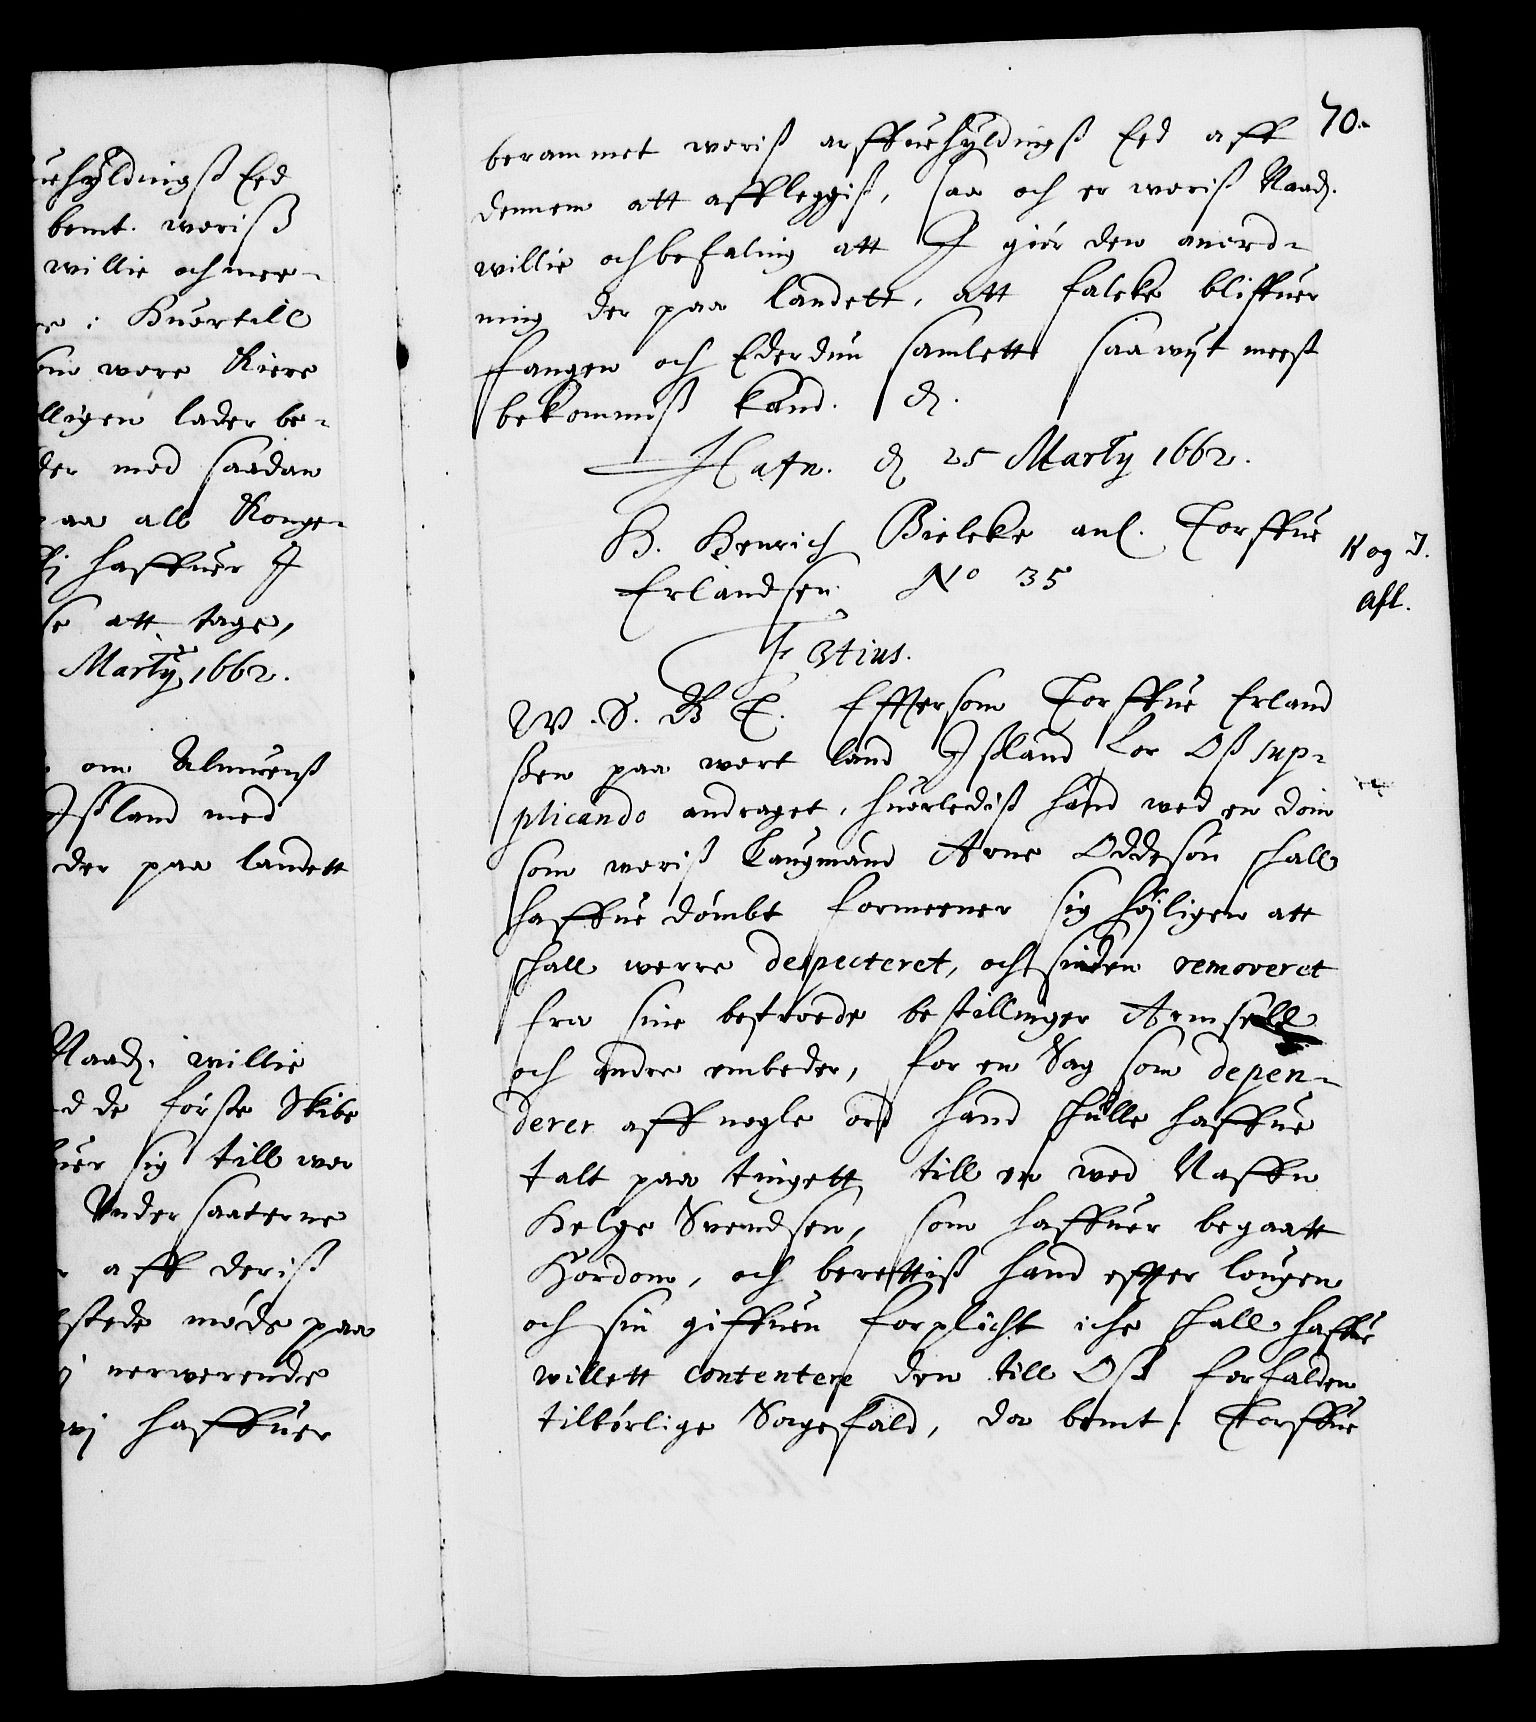 uehÿldingß Eed
bemt. woriß
willie och mee-
i Huortill
wore Kiere
lligen lader be-
der med saadan
aa all Konge-
haffuer I
att tage,
Martÿ 1662.
om Almuenß
Ißland med
der paa landett
Naad. willie
d de förste Skibe
uer sig till wor
Vndersaaterne
aff deriß
stede möde paa
nerwerende
wj haffuer
70.
berammet woriß arffuehÿldingß Eed aff
dennem att affleggiß, saa och er woriß Naad.
willie och befaling att I giör den anord-
ning der paa landett, att falcke bliffuer
fangen och Ederdun samlett saawÿt meest
bekommiß kand. d.
Hafn. d 25 Martÿ 1662.
H. Henrich Bielcke anl. Torffue
Erlandsen. No 35
K og I.
afl.
F 3tius.
W. S. G T. Effter som Torffue Erland
ßen paa wort land Ißland for Oß sup-
plicando andraget, huorlediß hand wed en dom
som woriß Laugmand Arne Oddeson schall
haffue dömbt formeener sig höjligen att
schall werre despecteret, och siden removeret
fra sine betroede bestillinger
och andre embeder, for en Sag som depen-
derer aff nogle ord hand schulle haffue
talt paa tingett till en wed Naffn
Helge Svendsen, som haffuer begaatt
Hordom, och berettiß hand effter lougen
och sin giffuen forplicht iche schall haffue
willett contentere den till Oß forfalden
tilbörlige Sagefald, da bemt. Torffue